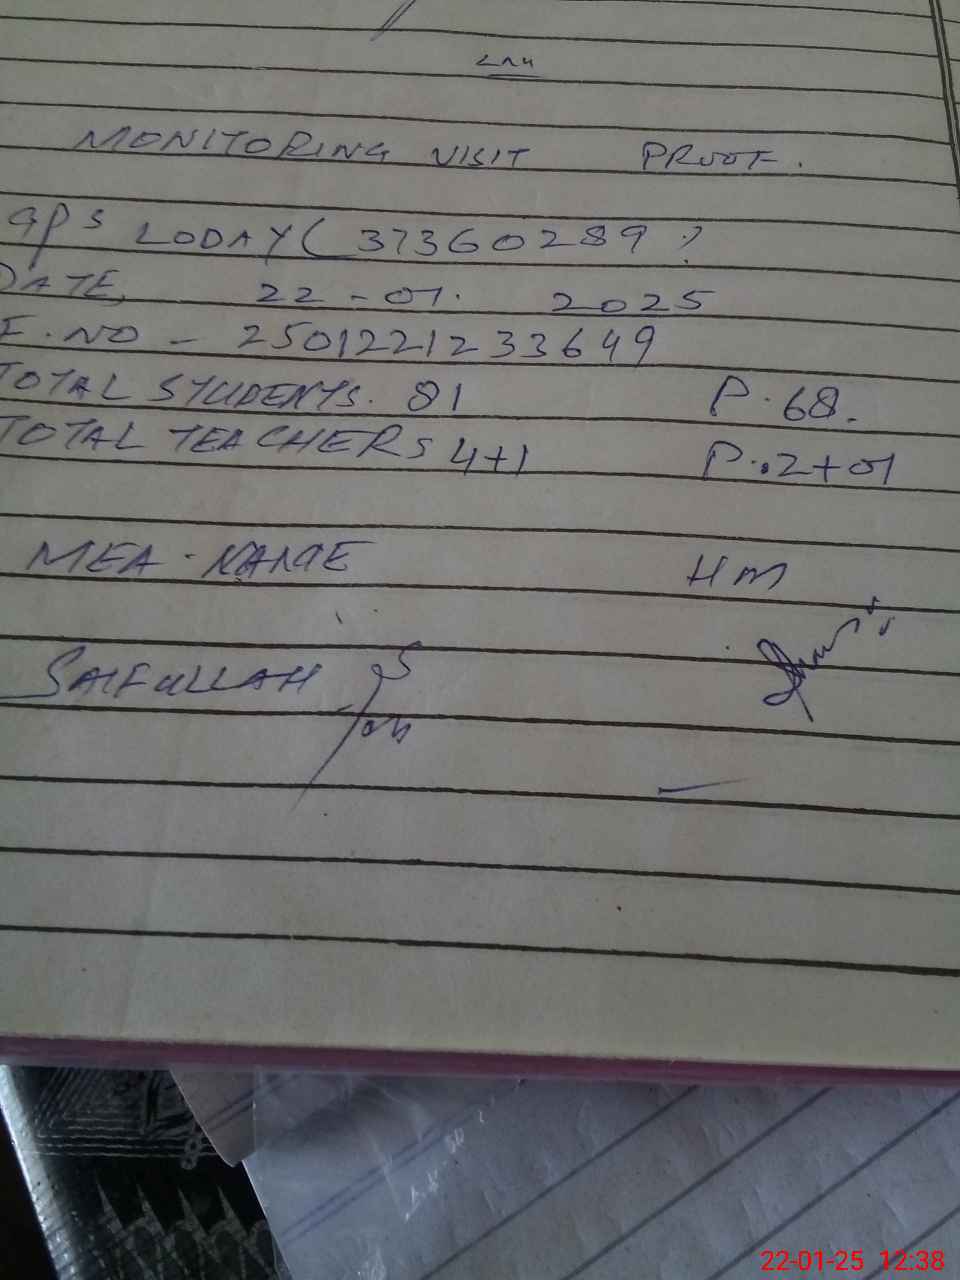 MONITORING VISIT PROOF.
GPS LODAY (37360289)
DATE, 22-01. 2025
F.NO - 2501221233649
TOTAL STUDENTS. 81 P.68.
TOTAL TEACHERS 4+1 P.:2+01
MEA-NAME HM
SAIFULLAH
22-01-25 12:38